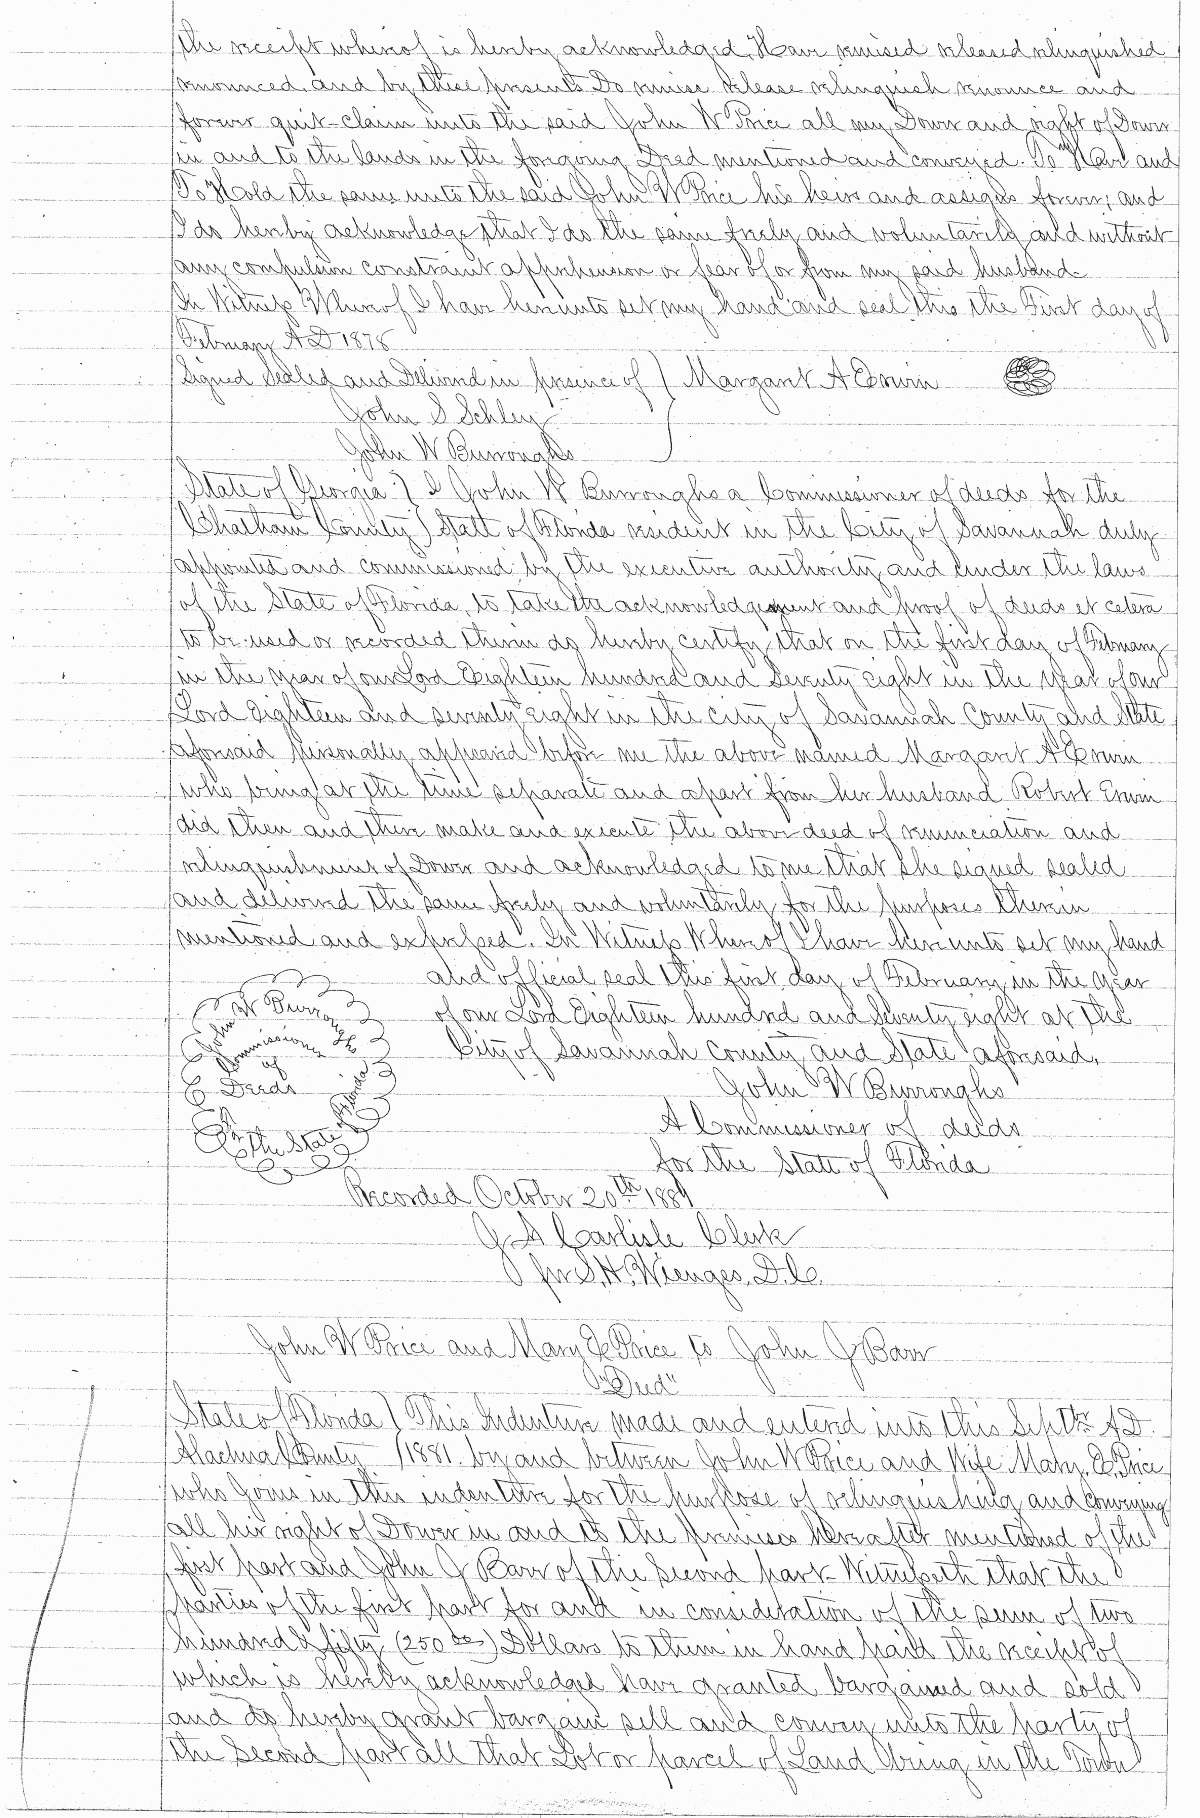 the receipt whereof is hereby acknowledged. Have remised released relinquished
renounced, and by these presents Do remise release relinquish renounce and
forever quit-claim unto the said John W Price all my Dower and right of Dower
in and to the lands in the foregoing Deed mentioned and conveyed. To Have and
To Hold the same unto the said John W Price his heirs and assigns forever; and
I do hereby acknowledge that I do the same freely and voluntarily and without
any compulsion constraint apprehension or fear of or from my said husband.
In Witness Whereof I have hereunto set my hand and seal this the First day of
February A D 1878
Signed Sealed and Delivered in presence of ) Margaret A Erwin
John S Schley
John W Burroughs
State of Georgia ) I John W Burroughs a Commissioner of deeds for the
Chatham County ) State of Florida resident in the City of Savannah duly
appointed and commissioned by the executive authority and under the laws
of the State of Florida, to take the acknowledgement and proof of deeds et cetera
to be used or recorded therein do hereby certify that on the first day of February
in the year of our Lord Eighteen hundred and Seventy Eight in the year of our
Lord Eighteen and seventy eight in the city of Savannah County and State
aforesaid personally appeared before me the above named Margaret A Erwin
who being at the time separate and apart from her husband Robert Erwin
did then and there make and execute the above deed of renunciation and
relinquishment of Dower and acknowledged to me that she signed sealed
and delivered the same freely and voluntarily for the purposes therein
mentioned and expressed. In Witness Whereof I have hereunto set my hand
and official seal this first day of February in the year
of our Lord Eighteen hundred and Seventy eight at the
City of Savannah County and State aforesaid.
John W Burroughs
Commissioner
of
Deeds
In the State of Florida
John W Burroughs
A Commissioner of deeds
for the State of Florida
Recorded October 20th 1881
J A Carlisle Clerk
per S. H. Wienges, D. C.
John W Price and Mary E Price to John J Barr
"Deed"
State of Florida ) This Indenture made and entered into this Septr A.D.
Alachua County ) 1881. by and between John W Price and Wife Mary. E. Price
who joins in this indenture for the purpose of relinquishing and conveying
all her right of Dower in and to the premises hereafter mentioned of the
first part and John J Barr of the Second part - Witnesseth that the
parties of the first part for and in consideration of the sum of two
hundred & fifty (250 00) Dollars to them in hand paid the receipt of
which is hereby acknowledged have granted bargained and sold
and do hereby grant bargain sell and convey unto the party of
the Second part all that Lot or parcel of Land being in the Town